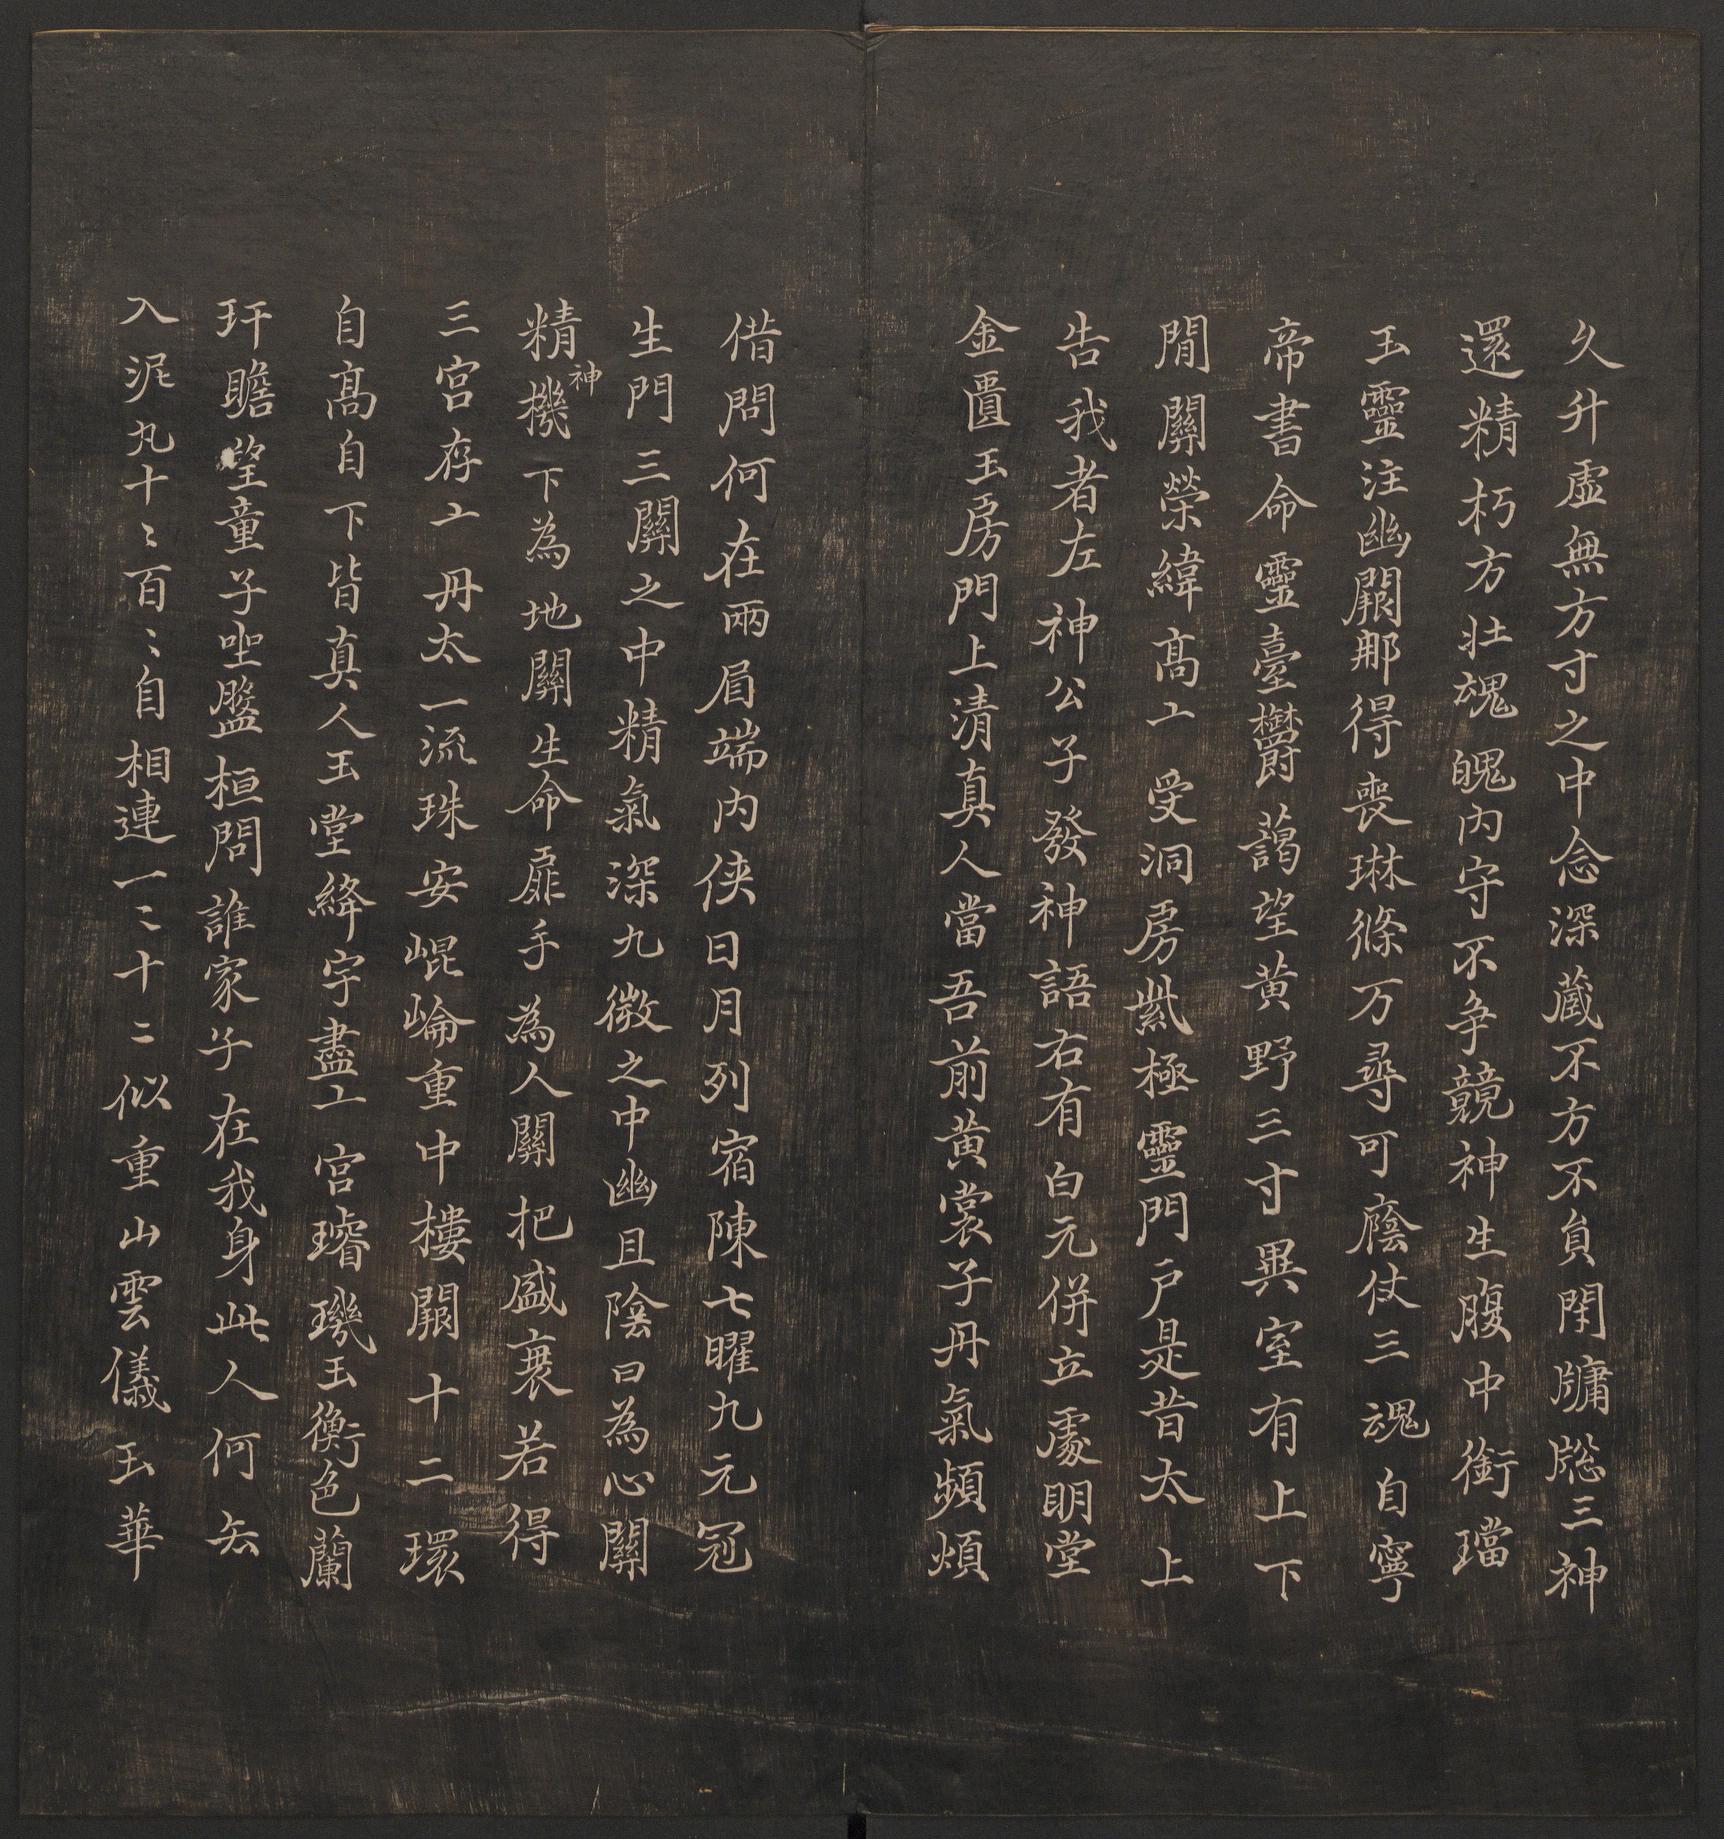 久升虛無方寸之中念深藏不方不負閇牗牎三神
還精朽方壯魂魄內守不争競神生腹中銜璫
玉靈注幽闕那得喪琳條万尋可廕仗三魂自寧
帝書命靈臺欝藹望黄野三寸異室有上下
閒關榮緯髙亠受洞房紫極靈門戸是昔太上
告我者左神公子發神語右有白元併立處眀堂
金匱玉房門上清真人當吾前黄裳子丹氣頻煩
借問何在兩眉端内侠日月列宿陳七曜九元冠
生門三關之中精氣深九微之中幽且陰曰為心關
精神機下為地關生命扉手為人關把盛衰若得
三宮存亠丹太一流珠安崐崘重中樓闕十二環
自髙自下皆真人玉堂絳宇盡亠宮璿璣玉衡色蘭
玕瞻望童子坐盤桓問誰家子在我身此人何去
入泥丸十〻百〻自相連一〻十二似重山雲儀玉華